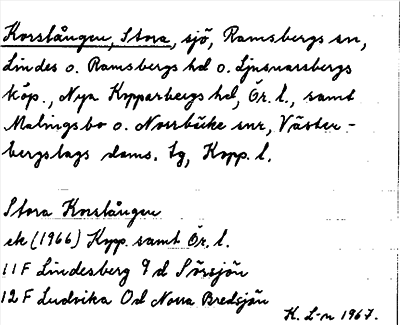 Korslången, Stora, sjö, Ramsbergs sn,
Lindes o. Ramsbergs hd o. Ljusnarsbergs
köp., Nya Kopparbergs hd, Ör. l., samt
Malingsbo o. Norrbärke snr, Väster-
bergslags doms. tg, Kopp. l.
Stora Korslången
ek (1966) Kopp. samt Ör. l.
11F Lindesberg 9 d Sörsjön
12F Ludvika 0d Norra Bredsjön
K. L-n 1967.